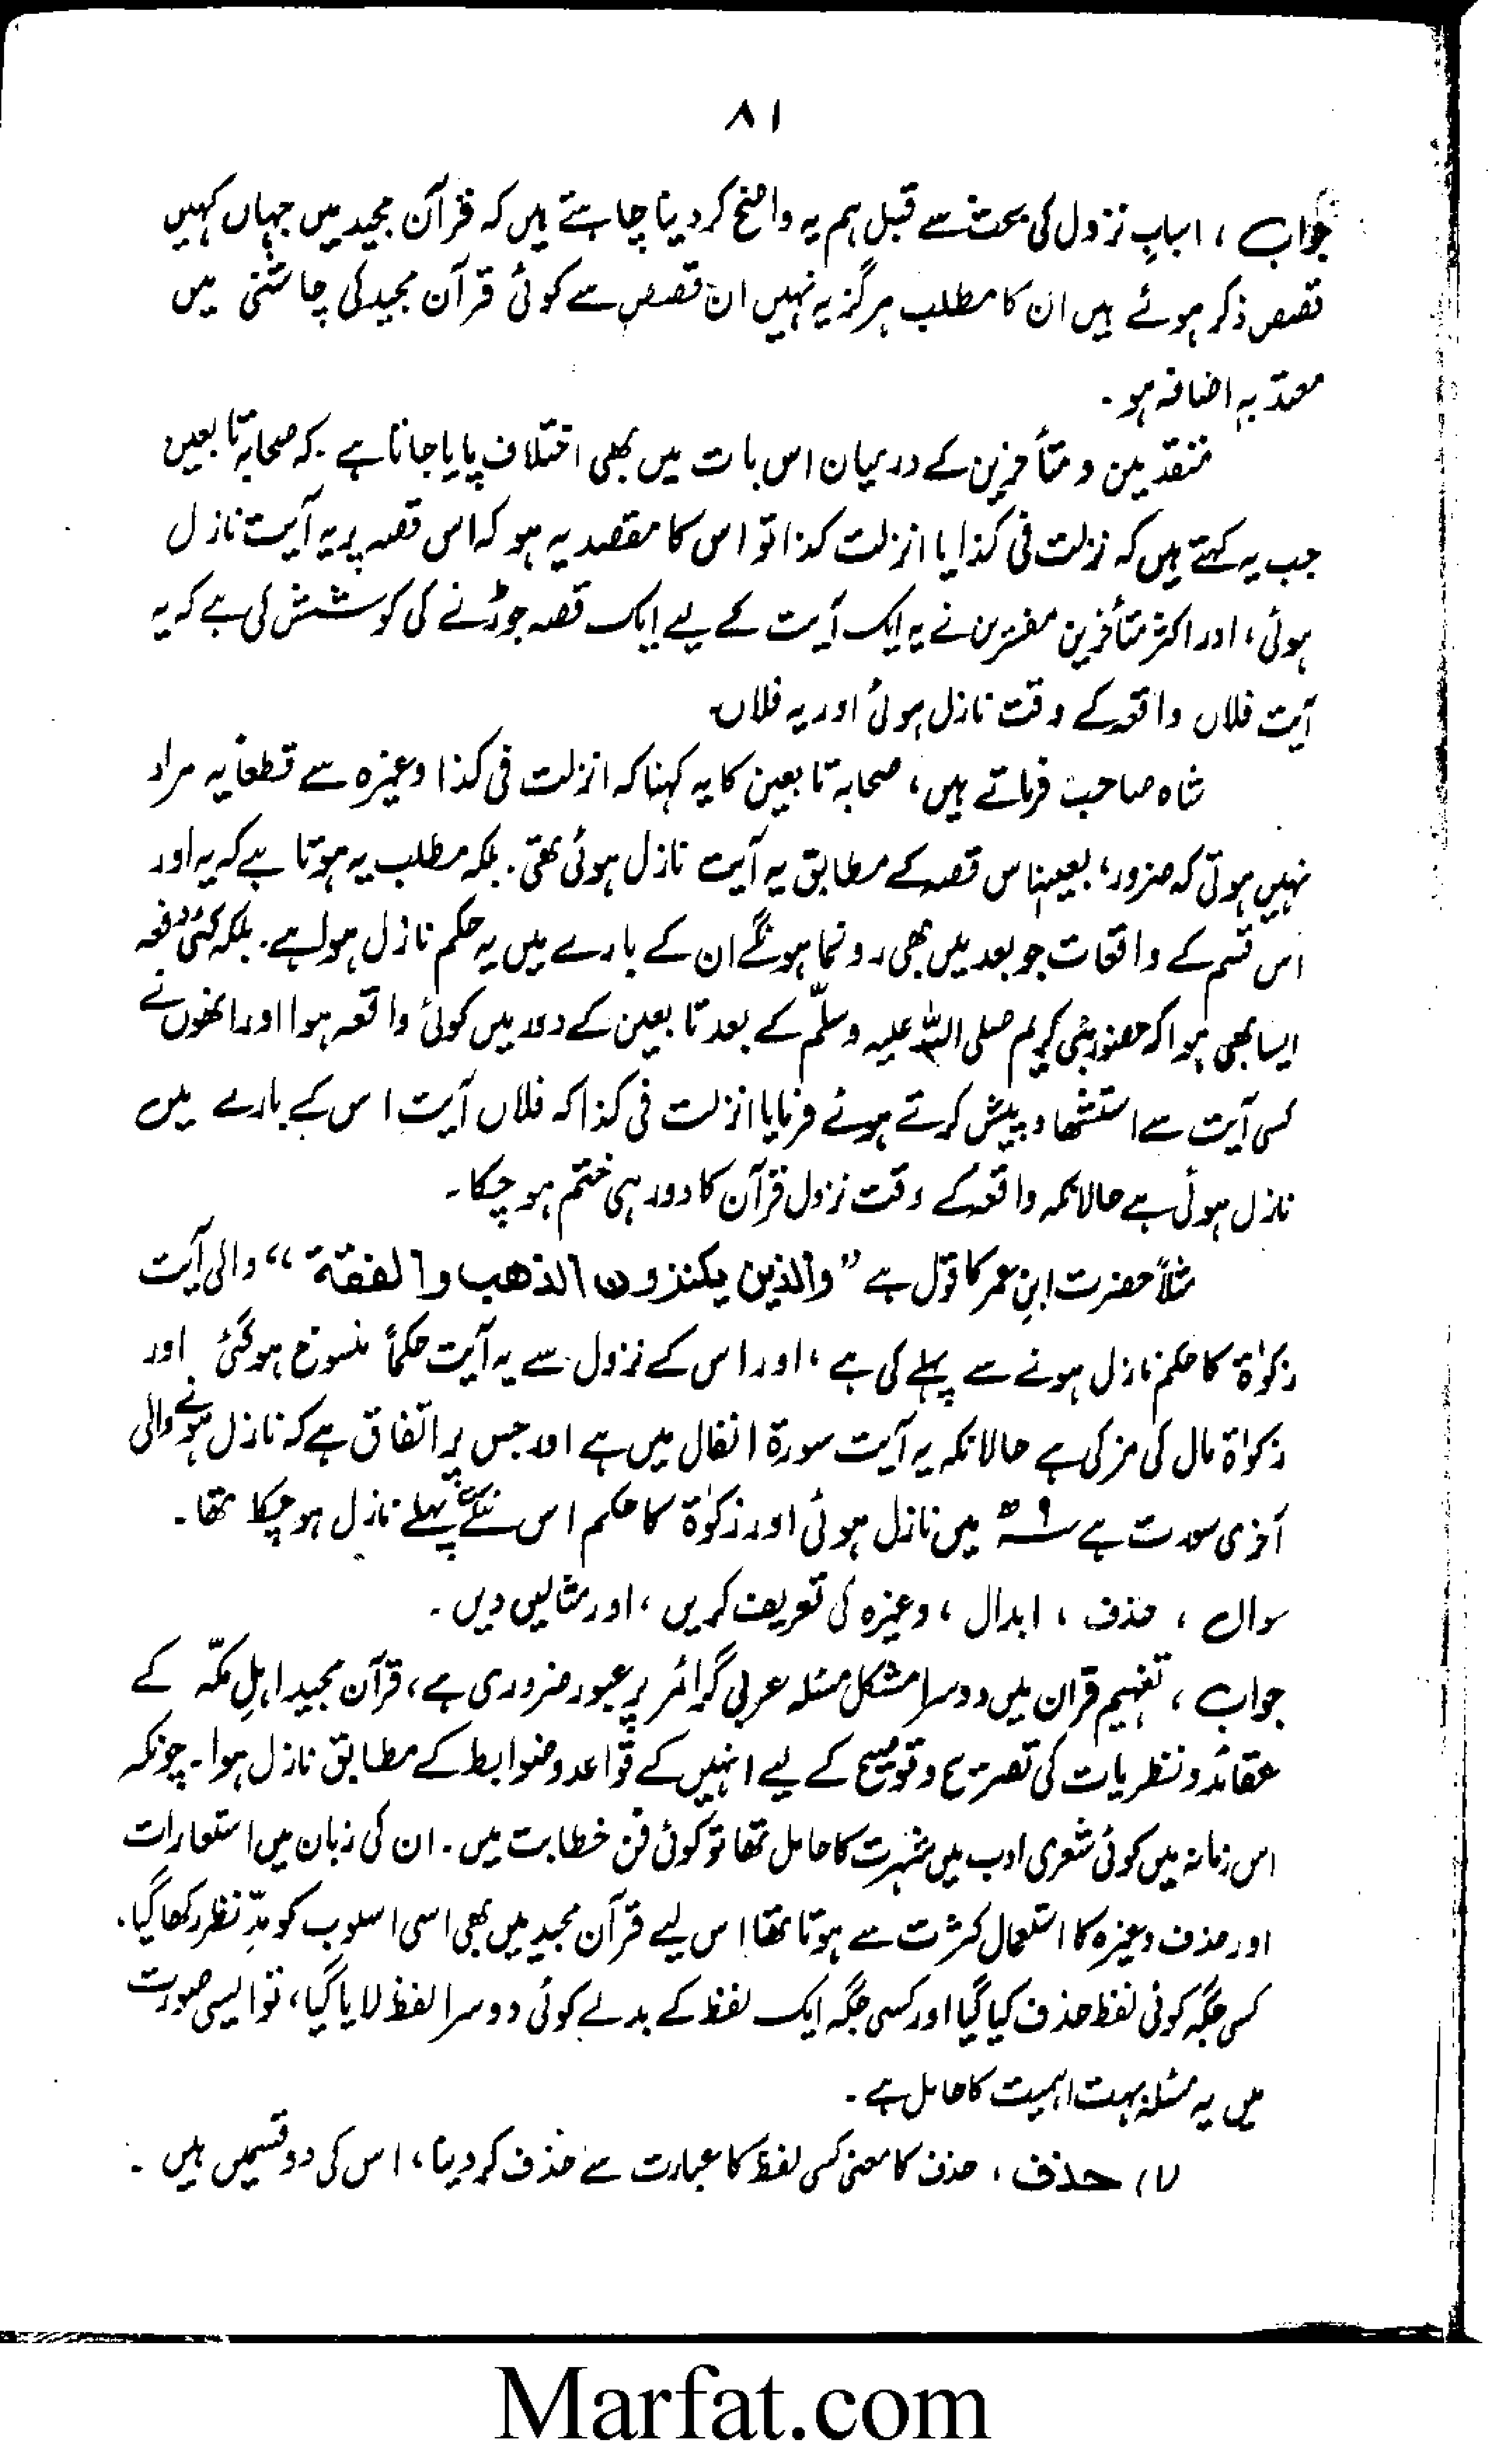 ۸۱
جواب ، اسبابِ نزول کی بحث سے قبل ہم یہ واضح کر دینا چاہتے ہیں کہ قرآن مجید میں جہاں کہیں
قصص ذکر ہوئے ہیں ان کا مطلب ہرگز یہ نہیں ان قصص سے کوئی قرآن مجید کی چاشنی میں
معتد بہٖ اضافہ ہو ۔
متقدمین و متأخرین کے درمیان اس بات میں بھی اختلاف پایا جاتا ہے ۔ کہ صحابہ تابعین
جب یہ کہتے ہیں کہ نزلت فی کذا یا انزلت کذا تو اس کا مقصد یہ ہو کہ اس قصہ پر یہ آیت نازل
ہوئی ، اور اکثر متأخرین مفسرین نے یہ ایک آیت کے لیے ایک قصہ جوڑنے کی کوشش کی ہے کہ یہ
آیت فلاں واقعہ کے وقت نازل ہوئی اور یہ فلاں
شاہ صاحب فرماتے ہیں ، صحابہ تابعین کا یہ کہنا کہ انزلت فی کذا وغیرہ سے قطعاً یہ مراد
نہیں ہوتی کہ ضرور ، بعینہٖ اس قصہ کے مطابق یہ آیت نازل ہوئی تھی ۔ بلکہ مطلب یہ ہوتا ہے کہ یہ اور
اس قسم کے واقعات جو بعد میں بھی رونما ہونگے ان کے بارے میں یہ حکم نازل ہوا ہے ۔ بلکہ کئی دفعہ
ایسا بھی ہوا کہ حضور نبی کریم صلی اللہ علیہ وسلّم کے بعد تابعین کے دور میں کوئی واقعہ ہوا اور انھوں نے
کسی آیت سے استشھاد پیش کرتے ہوئے فرمایا انزلت فی کذا کہ فلاں آیت اس کے بارے میں
نازل ہوئی ہے حالانکہ واقعہ کے وقت نزول قرآن کا دور ہی ختم ہو چکا ۔
مثلاً حضرت ابنِ عمر کا قول ہے ” والذین یکنزون الذھب والفضة “ والی آیت
زکوٰۃ کا حکم نازل ہونے سے پہلے کی ہے ، اور اس کے نزول سے یہ آیت حکماً منسوخ ہو گئی اور
زکوٰۃ مال کی مزکی ہے حالانکہ یہ آیت سورۃ انفال میں ہے اور جس پر اتفاق ہے کہ نازل ہونے والی
آخری سورت ہے ۹ھ میں نازل ہوئی اور زکوٰۃ کا حکم اس سے پہلے نازل ہو چکا تھا ۔
سوال ، حذف ، ابدال ، وغیرہ کی تعریف کریں ، اور مثالیں دیں ۔
جواب ، تفہیم قرآن میں دوسرا مشکل مسئلہ عربی گرائمر پر عبور ضروری ہے ، قرآن مجید اہلِ مکّہ کے
عقائد و نظریات کی تصریح و توضیح کے لیے انہیں کے قواعد و ضوابط کے مطابق نازل ہوا ۔ چونکہ
اس زمانہ میں کوئی شعری ادب میں شہرت کا حامل تھا تو کوئی فن خطابت میں ۔ ان کی زبان میں استعارات
اور حذف وغیرہ کا استعمال کثرت سے ہوتا تھا اس لیے قرآن مجید میں بھی اسی اسلوب کو مدِّ نظر رکھا گیا ۔
کسی جگہ کوئی لفظ حذف کیا گیا اور کسی جگہ ایک لفظ کے بدلے کوئی دوسرا لفظ لایا گیا ، تو ایسی صورت
میں یہ مسئلہ بہت اہمیت کا حامل ہے ۔
(۱) حذف ، حذف کا معنی کسی لفظ کا عبارت سے حذف کر دینا ، اس کی دو قسمیں ہیں ۔
Marfat.com